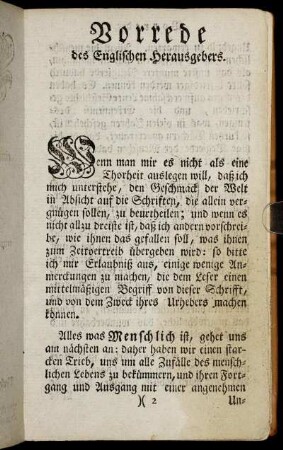 Vorrede
des Englischen Herausgebers.
Wenn man mir es nicht als eine
Thorheit auslegen will, daß ich
mich unterstehe, den Geschmack der Welt
in Absicht auf die Schriften, die allein ver-
gnügen sollen, zu beurtheilen; und wenn es
nicht allzu dreiste ist, daß ich andern vorschrei-
be, wie ihnen das gefallen soll, was ihnen
zum Zeitvertreib übergeben wird: so bitte
ich mir Erlaubniß aus, einige wenige An-
merckungen zu machen, die dem Leser einen
mittelmäßigen Begriff von dieser Schrifft,
und von dem Zweck ihres Urhebers machen
können.
Alles was Menschlich ist, gehet uns
am nächsten an: daher haben wir einen star-
cken Trieb, uns um alle Zufälle des mensch-
lichen Lebens zu bekümmern, und ihren Fort-
gang und Ausgang mit einer angenehmen
)( 2 Un-